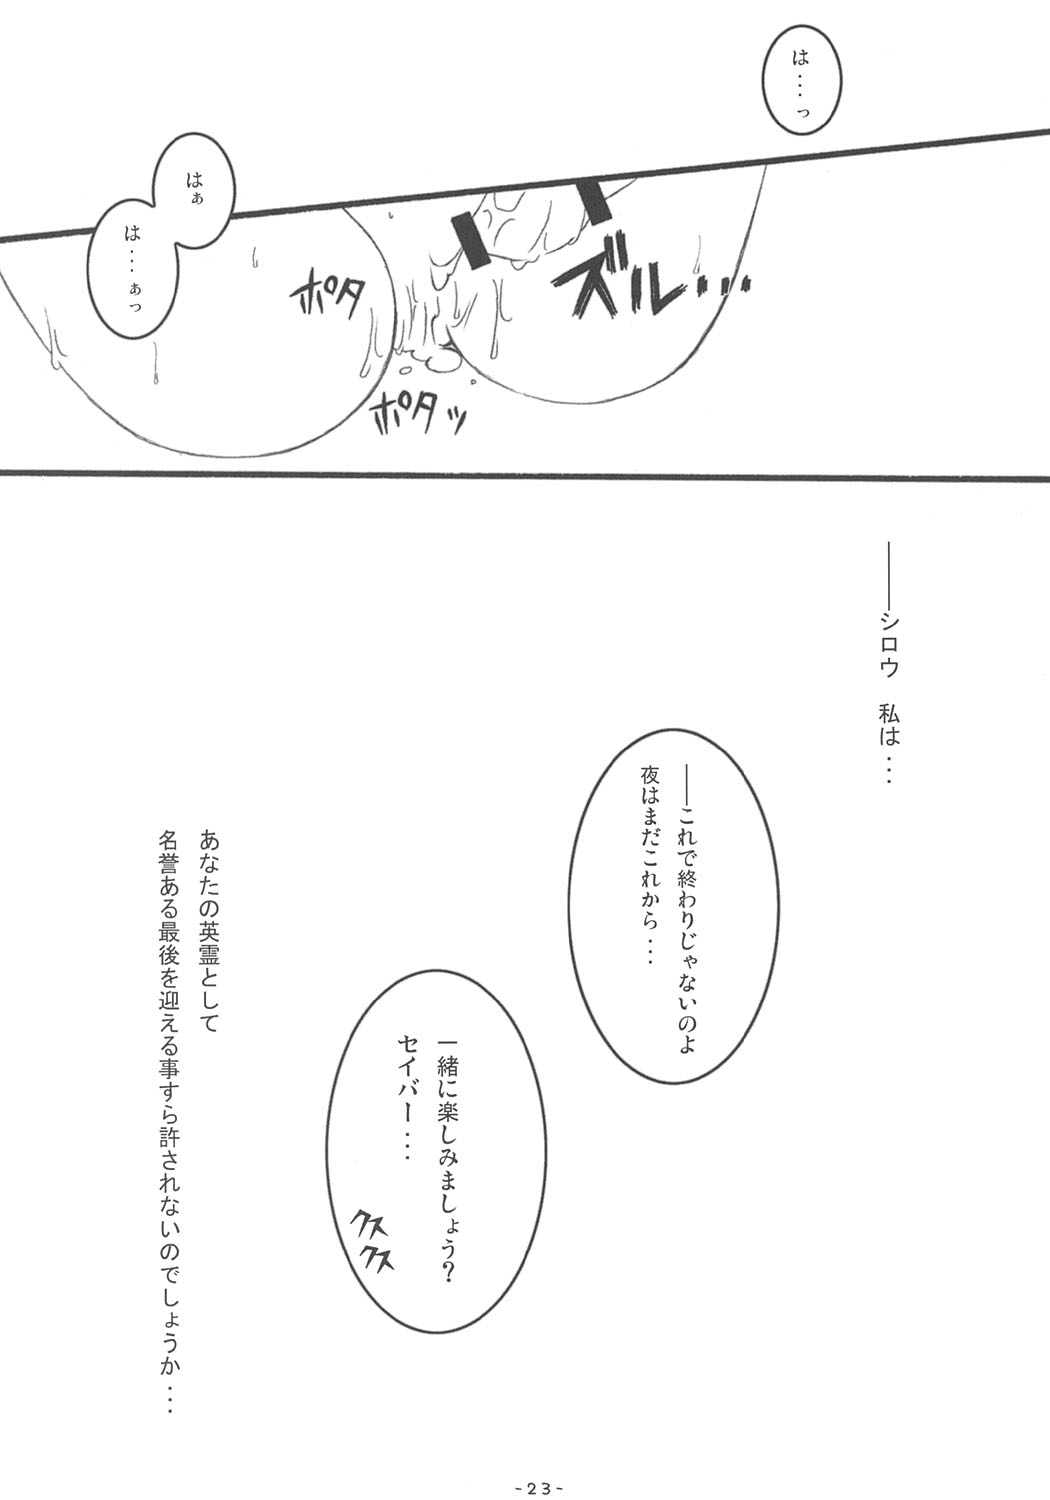 は・・・っ
はぁ
は・・・ぁっ
ズル・・・
ポタ
ポタッ
――シロウ　私は・・・
――これで終わりじゃないのよ
夜はまだこれから・・・
一緒に楽しみましょう？
セイバー・・・
クス
クス
あなたの英霊として
名誉ある最後を迎える事すら許されないのでしょうか・・・
-23-